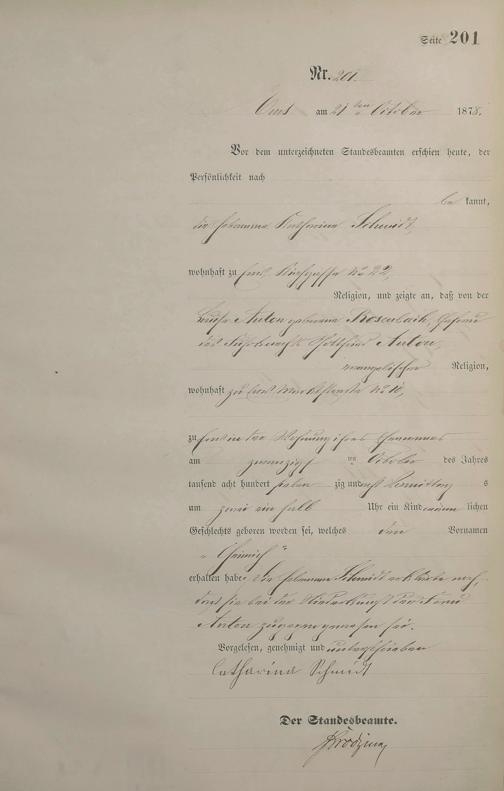 Seite 201
Nr. 201.
Ems am 21ten October 1878.
Vor dem unterzeichneten Standesbeamten erschien heute, der
Persönlichkeit nach
be kannt,
die Hebamme Katharina Schmidt,
wohnhaft zu Ems, No 22,
Religion, und zeigte an, daß von der
Anton geborene Rosenbach, Ehefrau
des Gottfried Anton,
evangelischer Religion,
wohnhaft zu Ems No
zu Ems in der Wohnung ihres Ehemannes
am zwanzigsten October des Jahres
tausend acht hundert sieben zig und acht Vormittags
um zwei ein halb Uhr ein Kind männlichen
Geschlechts geboren worden sei, welches den Vornamen
„Heinrich“
erhalten habe. Die Hebamme Schmidt erklärte noch,
daß sie bei der Niederkunft der Frau
Anton zugegen gewesen sei.
Vorgelesen, genehmigt und unterschrieben
Catharina Schmidt
Der Standesbeamte.